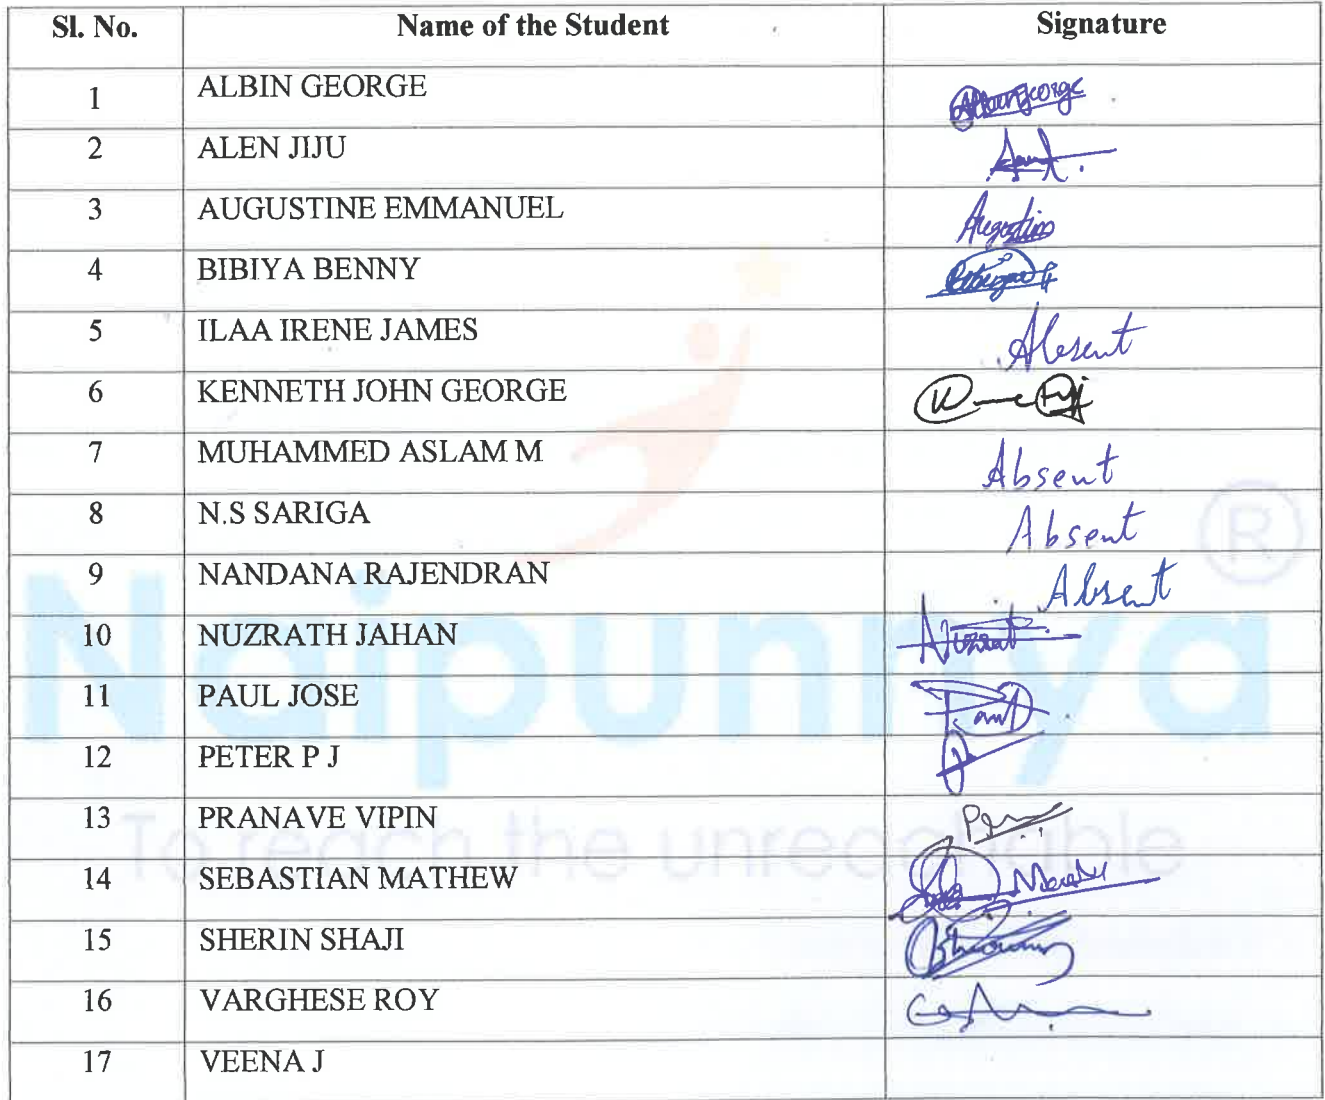 Sl. No. Name of the Student Signature
1 ALBIN GEORGE Albin George
2 ALEN JIJU
3 AUGUSTINE EMMANUEL Augustine
4 BIBIYA BENNY
5 ILAA IRENE JAMES Absent
6 KENNETH JOHN GEORGE
7 MUHAMMED ASLAM M Absent
8 N.S SARIGA Absent
9 NANDANA RAJENDRAN Absent
10 NUZRATH JAHAN
11 PAUL JOSE
12 PETER P J
13 PRANAVE VIPIN
14 SEBASTIAN MATHEW
15 SHERIN SHAJI
16 VARGHESE ROY
17 VEENA J
Naipunnya ®
To reach the unreachable